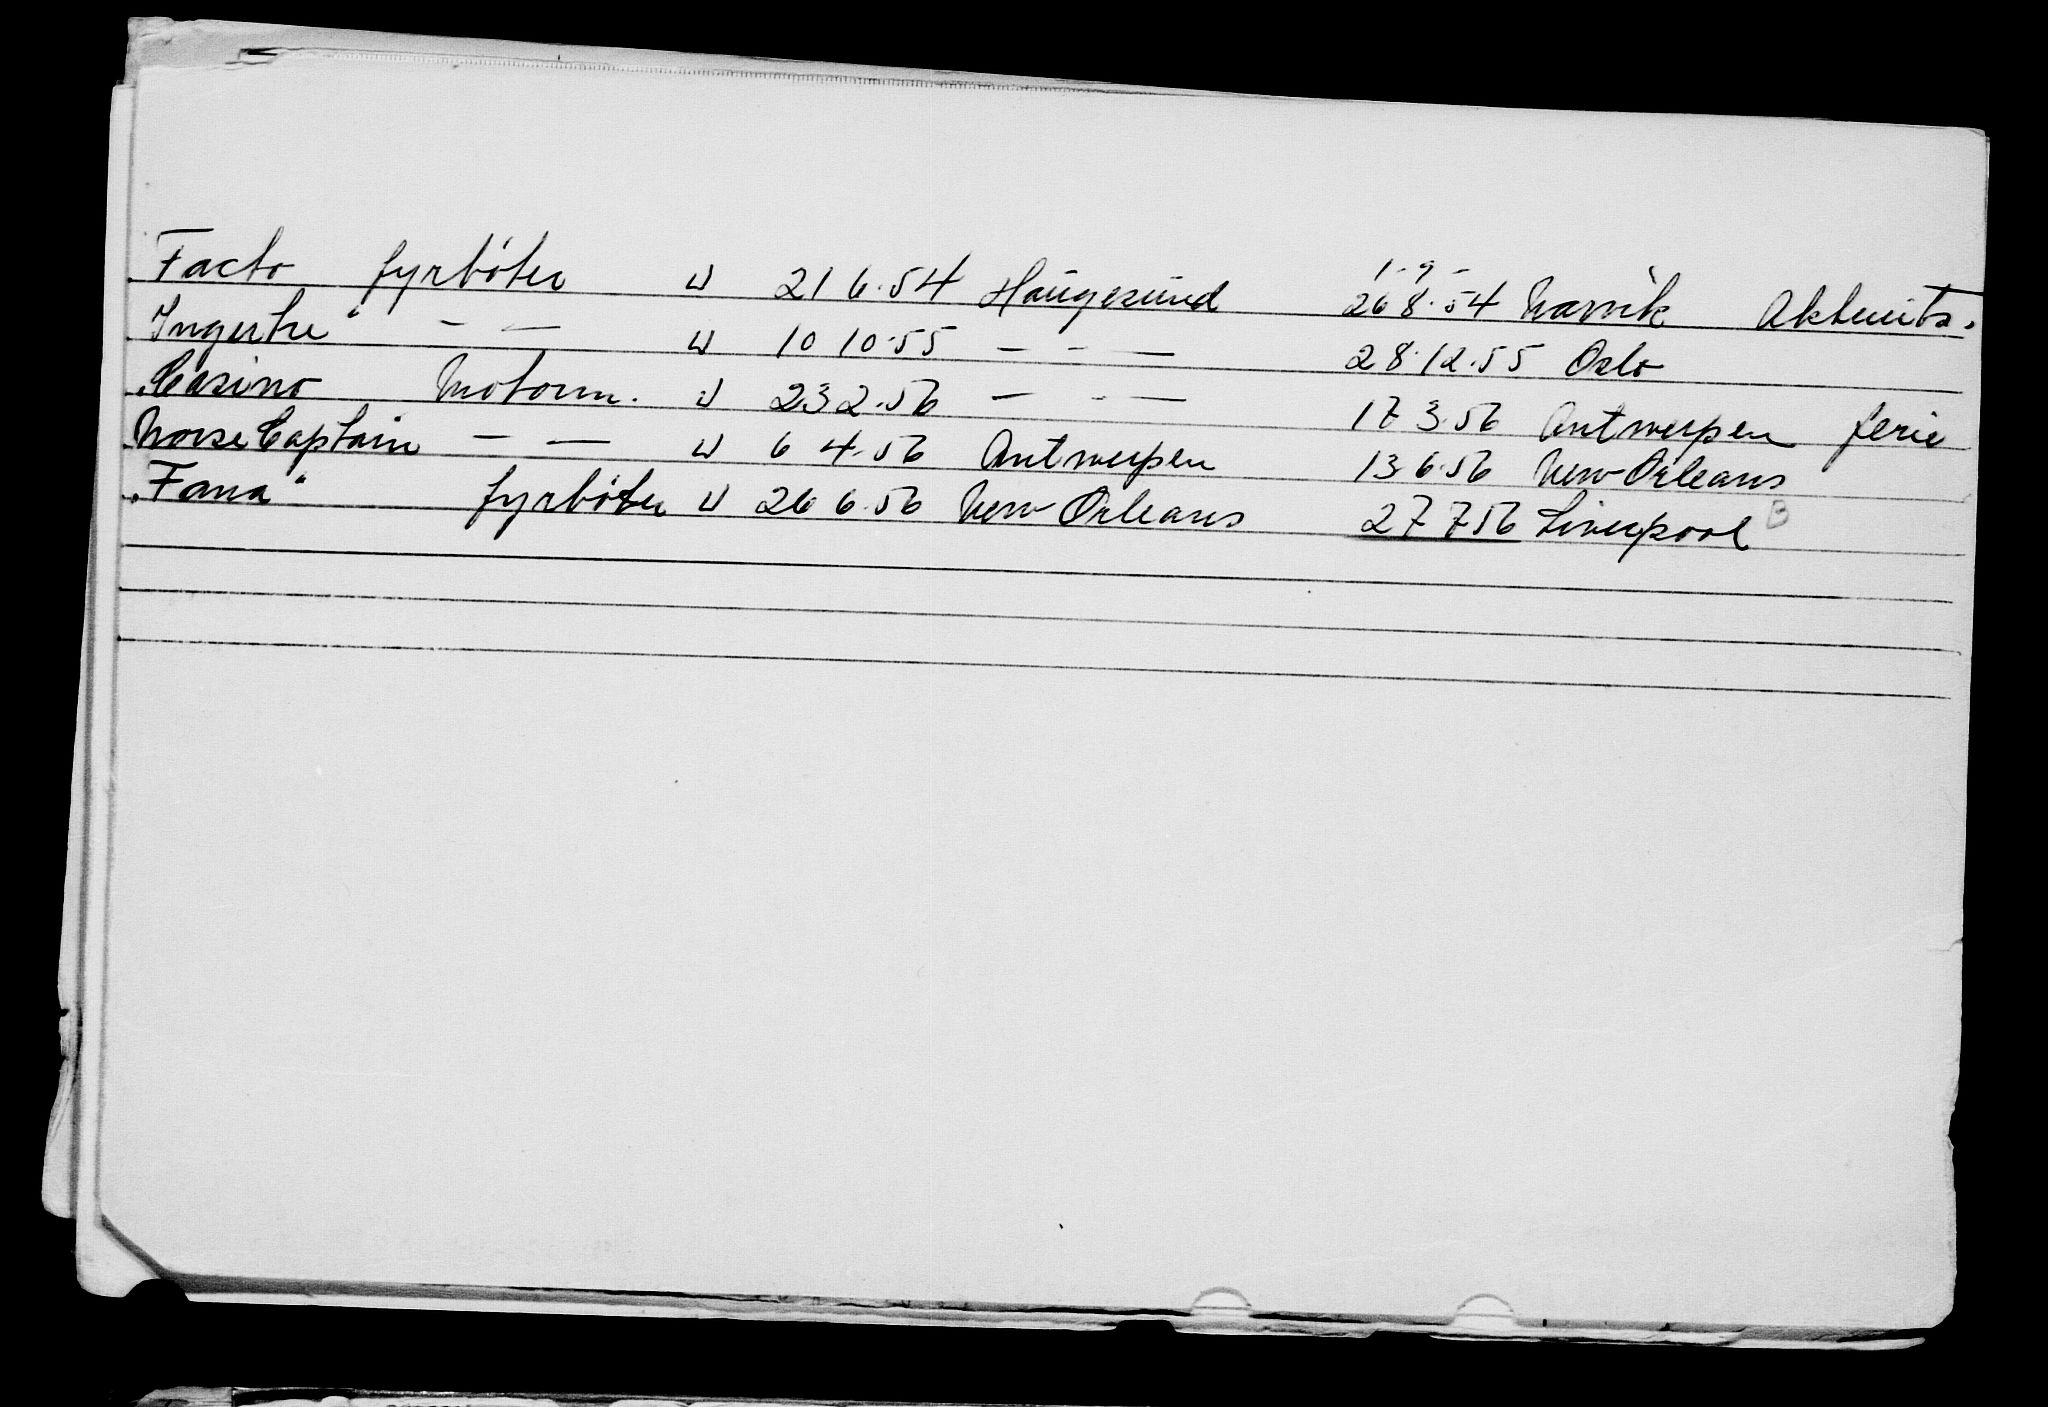 Facto fyrböter u 21 6.54 Haugesund 1-9- 26 8.54 Narvik Akteruts.
"Ingertre" — — u 10 10.55 — - — 28.12.55 Oslo
"Casino Motorm. u 23 2.56 — - — 17 3.56 Antwerpen ferie
Norse Captain — — u 6 4.56 Antwerpen 13 6.56 New Orleans
"Fana" fyrböter u 26 6.56 New Orleans 27 7 56 Liverpool B